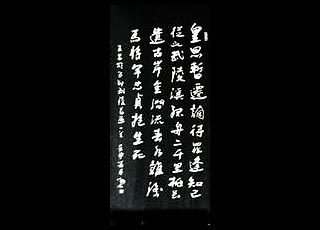 皇恩暫遷謫待罪逢知己
從此武陵溪孤舟二千里桃花
遺古岸金澗流春水誰識
馬將軍忠貞抱生死
王昌齡